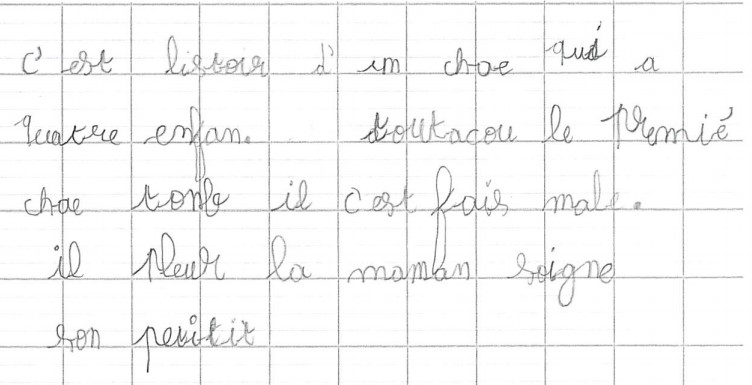 C'est listoir d'un chae qui a
quatre enfan. toutacou le premié
chae tonbe il c'est fais male.
il pleur la maman soigne
son petitit